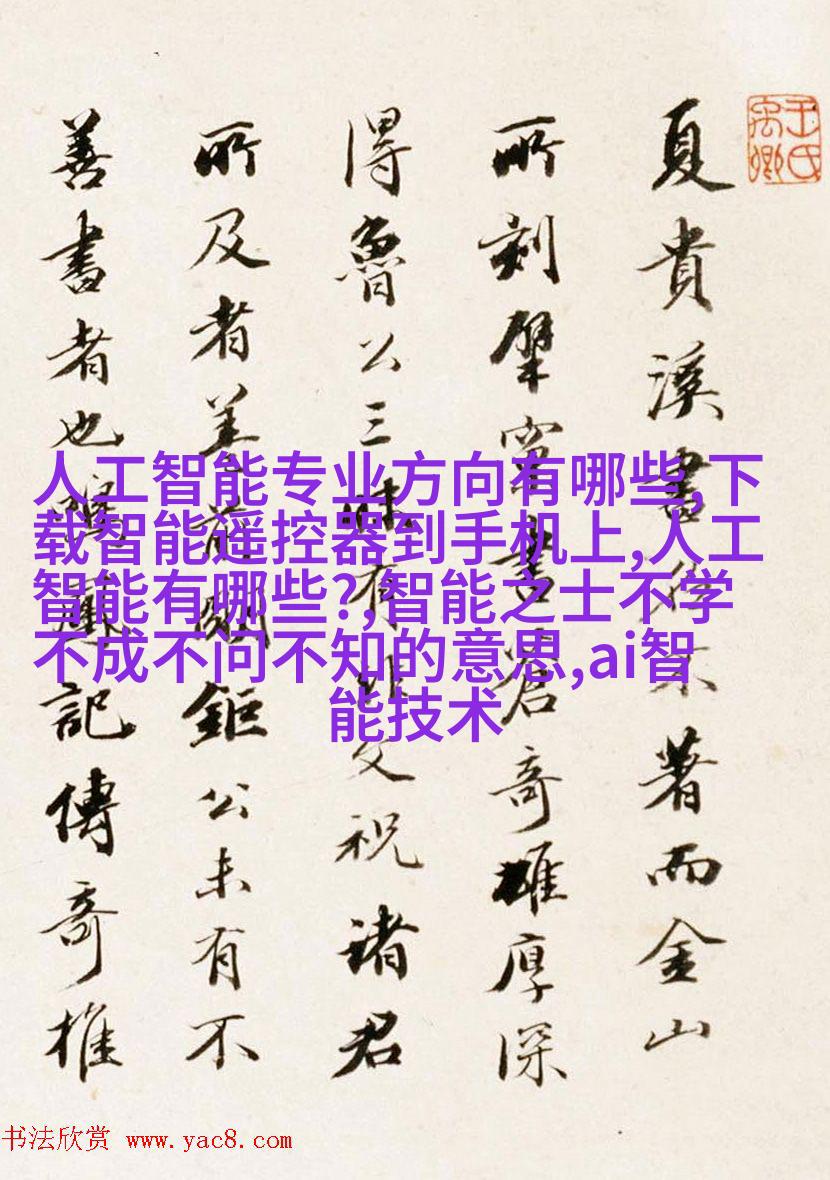 夏貴溪書不著而金山
所刻擘窠書奇雄厚深
得魯公三昧有非文祝諸君
所及者前鉅公未有不
善書者也記傳奇推
王氏禹卿
人工智能专业方向有哪些,下
载智能遥控器到手机上,人工
智能有哪些?,智能之士不学
不成不问不知的意思,ai智
能技术
书法欣赏 www.yac8.com